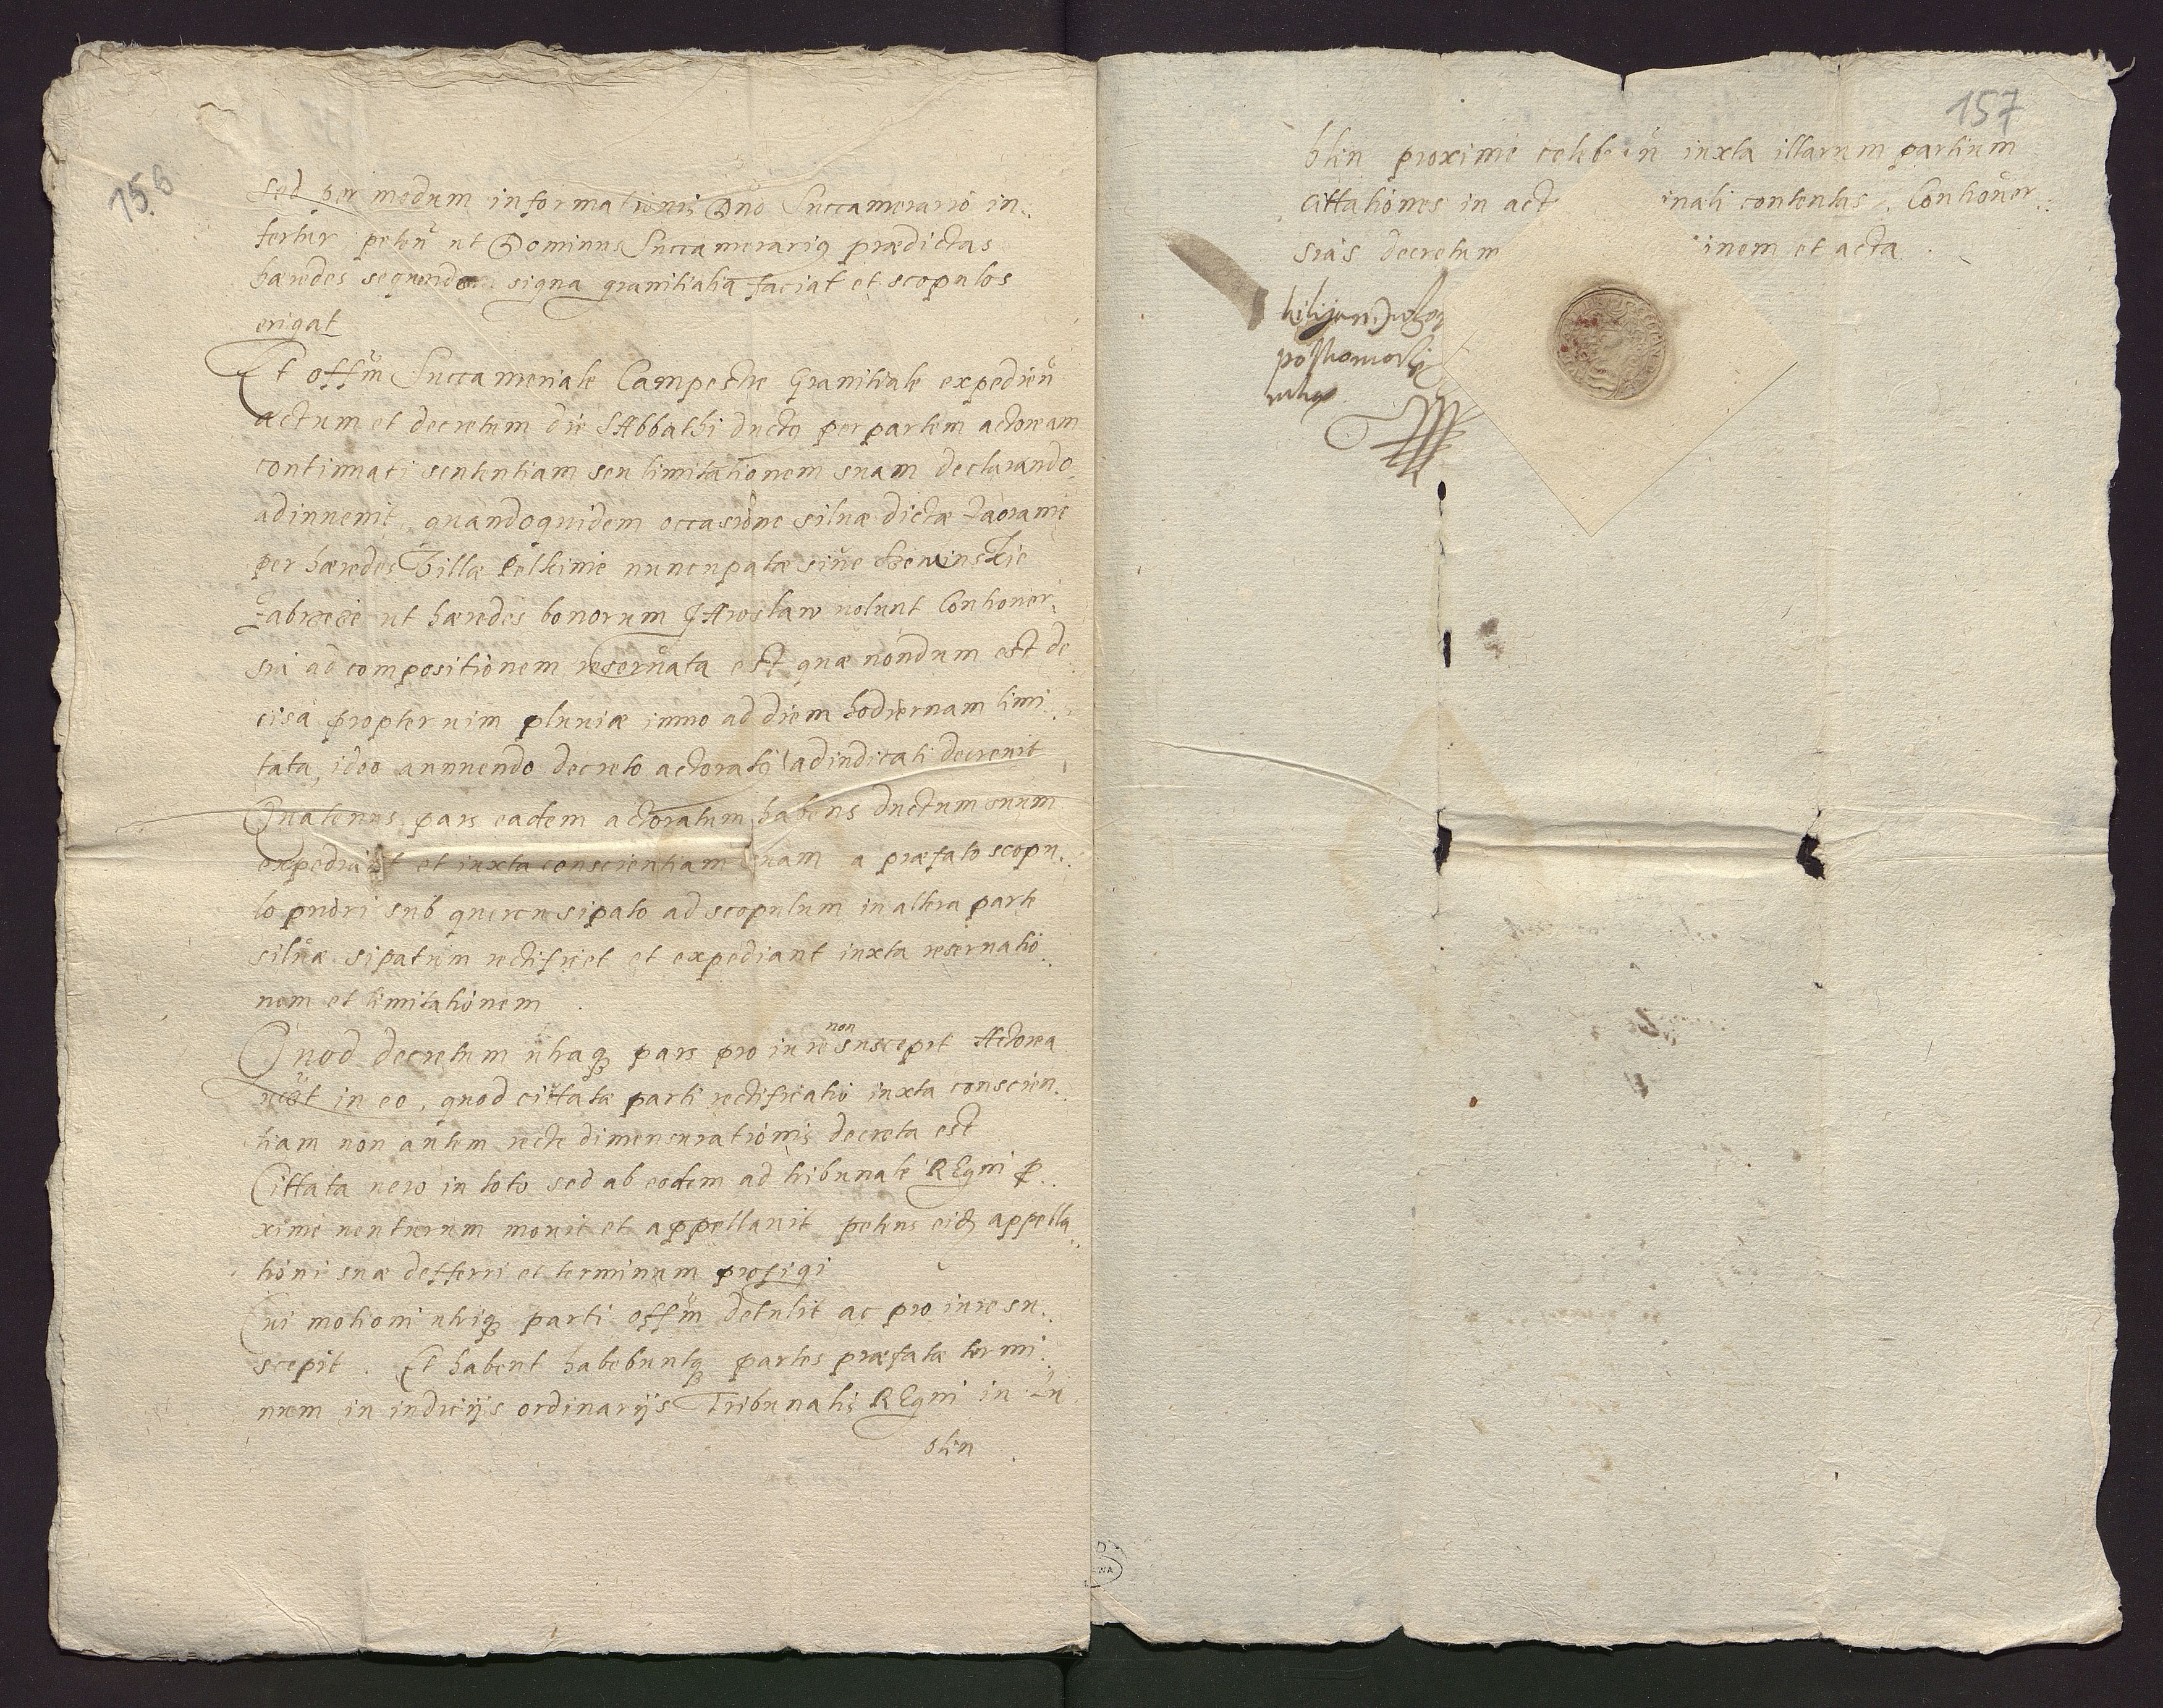 156
sed per modum informationis Dno Succamerario in..
fertur peteñ ut Dominus Succamerariq prædictas
hæredes sequendo signa granitialia faciat et scopulos
erigat
Et offm̃ Succameriale Campestre Granitiale expedieñ
actum et decretum die SAbbathi ductq per partem actoream
continuati sententiam seu limitationem suam declarando
adinuenit, quandoquidem occasione siluæ dictæ
per hæredes Villæ Pelkinie nuncupatæ siue
ut hæredes bonorum JAroslaw uolunt Controuer..
sia ad compositionem reseruata est quæ nondum est de
cisa propter uim pluuiæ immo ad diem hodiernam limi..
tata, ideo annuendo decreto actoratq adiudicati decreuit
Quatenus pars eadem actoratum habens ductum suum
expediat et iuxta conscientiam suam a præfato scopu..
lo pudri sub quercu sipato ad scopulum in altera parte
siluæ sipatum rectificet et expediant iuxta reseruatio..
nem et limitationem .
Quod decretum utraq pars pro iure non suscepit Actorea
in eo, quod cittatæ parti rectificatio iuxta conscien..
tiam non autem recte dimensurationis decreta est
Cittata uero in toto sed ab eodem ad tribunale REgni p..
xime uenturum mouit et appellauit petens eid appella..
tioni suæ defferri et terminum profigi
Cui motioni utriq parti offm̃ detulit ac pro iure su..
scepit . Et habent habebuntq partes præfatæ termi..
num in iudicijs ordinarijs Tribunalis REgni in Lu
blin
157
blin proxime celeb iuxta illarum partium
Cittationes in act inali contentas . Controuer..
sias decretum inem et acta .